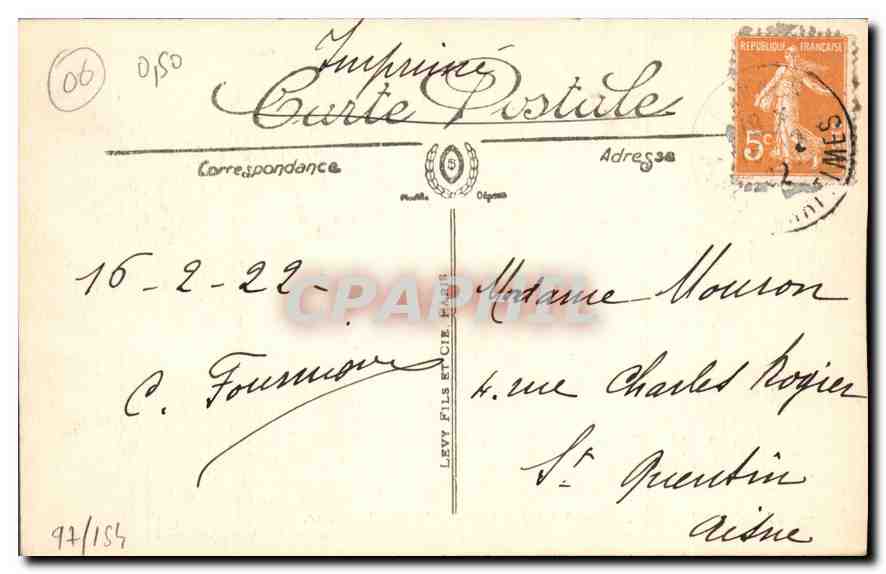 06
0,50
Imprimé
Carte Postale
RÉPUBLIQUE FRANÇAISE
5c
IMES
Correspondance
Adresse
5
Modèle Déposé
16-2-22-
C. Fournior
CPAPHIL
LEVY FILS ET CIE, PARIS
Madame Mouron
4. rue Charles Rogier
St Quentin
Aisne
97/154